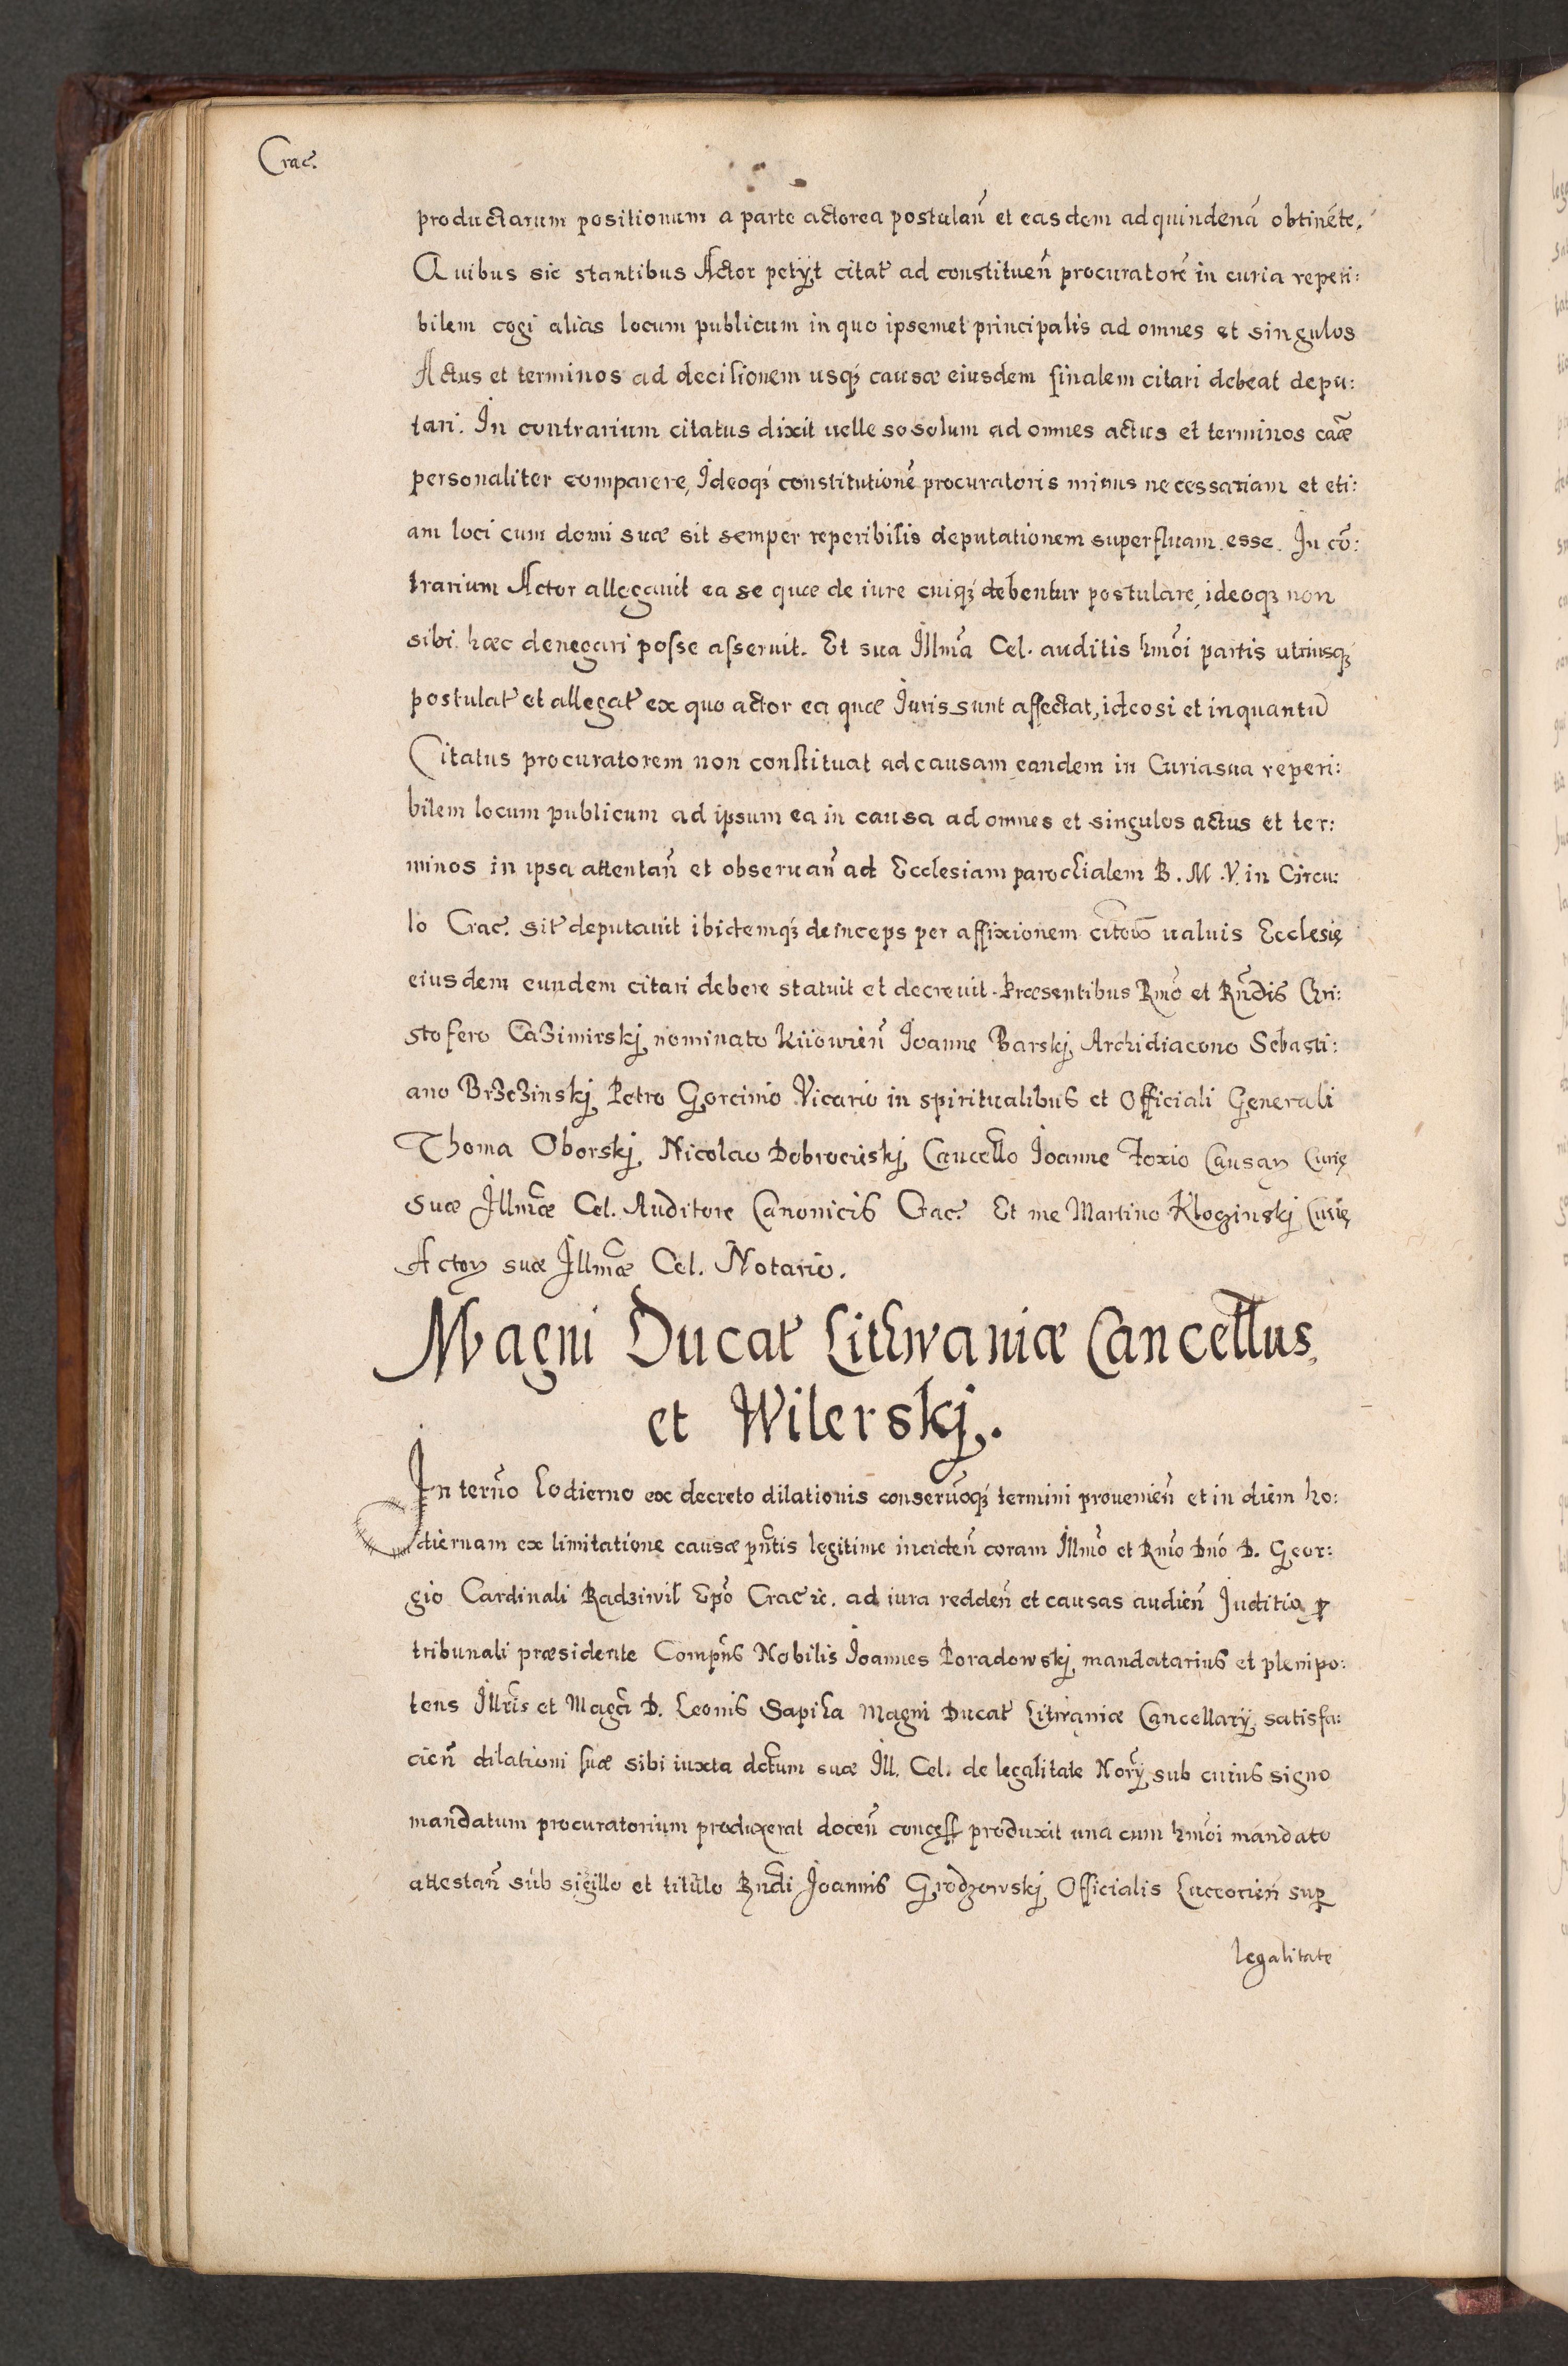 Crac̃.
productarum positionum a parte actorea postulañ et easdem ad quindenã obtinẽte.
Quibus sic stantibus Actor petÿt citat̃ ad constitueñ procuratorẽ in curia reperi:
bilem cogi alias locum publicum in quo ipsemet principalis ad omnes et singulos
Actus et terminos ad decisionem usq́ȝ causæ eiusdem finalem citari debeat depu:
tari. In contrarium citatus dixit uelle se solum ad omnes actus et terminos cãæ
personaliter comparere, Ideoq́ȝ constitutionẽ procuratoris minus necessariam et eti:
am loci cum domi suæ sit semper reperibilis deputationem superfluam esse. In cõ:
trarium Actor allegauit ea se quæ de iure cuiq́ȝ debentur postulare, ideoqȝ non
sibi hæc denegari posse asseruit. Et sua Illmã Cel. auditis hmõi partis utriusq́ȝ
postulat̃ et allegat̃ ex quo actor ea quæ Iuris sunt affectat, ideo si et inquantũ
Citatus procuratorem non constituat ad causam eandem in Curia sua reperi:
bilem locum publicum ad ipsum ea in causa ad omnes et singulos actus et ter:
minos in ipsa attentañ et obseruañ ad Ecclesiam parochialem B. M. V. in Circu:
lo Crac̃. sit̃ deputauit ibidemq́ȝ deinceps per affixionem citõũ ualuis Ecclesię
eiusdem eundem citari debere statuit et decreuit. Præsentibus Rmõ et Rñdis Chri:
stofero Caȝimirskj nominato Kiiowieñ Ioanne Barskj Archidiacono Sebasti:
ano Brȝeȝinskj Petro Gorcinio Vicario in spiritualibus et Officiali Generali
Thoma Oborskj, Nicolao Dobrocieskj Cancello Ioanne Foxio Causaꝝ Curię
suæ Illmæ̃ Cel. Auditore Canonicis Crac̃. Et me Martino Kloginskj Curię
Actoꝝ suæ Illmæ̃ Cel. Notario.
Magni Ducat̃ Lithwaniæ Cancellus
et Wilerskj.
In termõ hodierno ex decreto dilationis conseruõq́ȝ termini prouenieñ et in diem ho:
diernam ex limitatione causæ pñtis legitime incideñ coram Illmõ et Rmõ Dnõ D. Geor:
gio Cardinali Radȝiwil Epõ Crac̃ ꝛc. ad iura reddeñ et causas audieñ Juditio ꝓ
tribunali præsidente Compñs Nobilis Ioannes Poradowskj mandatarius et plenipo:
tens Illris̃ et Magcĩ D. Leonis Sapiha Magni Ducat̃ Litwaniæ Cancellarÿ satisfa:
cieñ dilationi suæ sibi iuxta dctũm suæ Ill. Cel. de legalitate Norỹ sub cuius signo
mandatum procuratorium produxerat doceñ concess̃ produxit una cum hmõi mandato
attestañ sub sigillo et titulo Rñdi Joannis Grodzowskj Officialis Luceorieñ suꝑ
legalitate